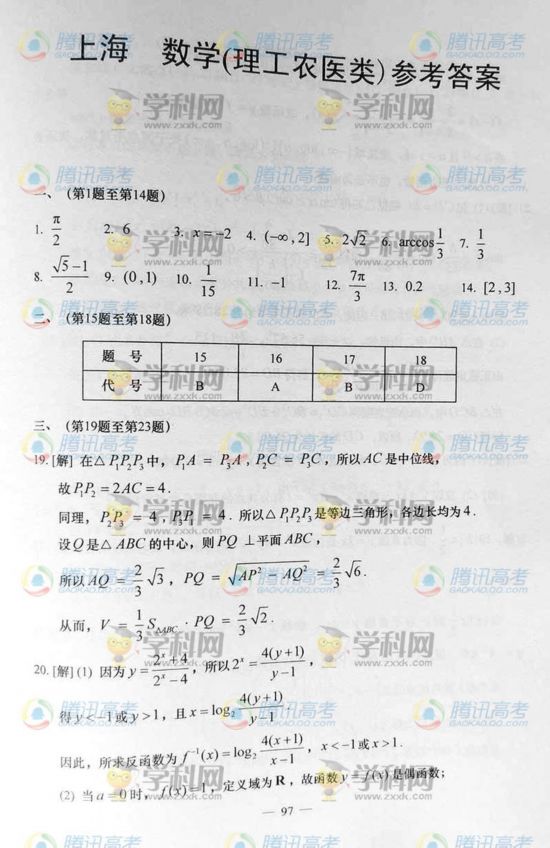 上海 数学(理工农医类)参考答案
一、(第1题至第14题)
1. π/2 2. 6 3. x=-2 4. (-∞,2] 5. 2√2 6. arccos 1/3 7. 1/3
8. (√5-1)/2 9. (0,1) 10. 1/15 11. -1 12. 7π/3 13. 0.2 14. [2,3]
二、(第15题至第18题)
题 号 15 16 17 18
代 号 B A B D
三、(第19题至第23题)
19. [解] 在△P₁P₂P₃中, P₁A = P₃A, P₂C = P₃C, 所以AC是中位线,
故P₁P₂ = 2AC = 4.
同理, P₂P₃ = 4, P₃P₁ = 4. 所以△P₁P₂P₃是等边三角形, 各边长均为4.
设Q是△ABC的中心, 则PQ⊥平面ABC,
所以AQ = 2/3 √3, PQ = √(AP² - AQ²) = 2/3 √6.
从而, V = 1/3 S△ABC · PQ = 2/3 √2.
20. [解] (1) 因为y = (2ˣ+4)/(2ˣ-4), 所以2ˣ = 4(y+1)/(y-1),
得y<-1或y>1, 且x = log₂ 4(y+1)/(y-1)
因此, 所求反函数为f⁻¹(x) = log₂ 4(x+1)/(x-1), x<-1或x>1.
(2) 当a=0时, f(x)=1, 定义域为R, 故函数y=f(x)是偶函数;
— 97 —
腾讯高考
GAOKAO.QQ.COM
学科网
www.zxxk.com